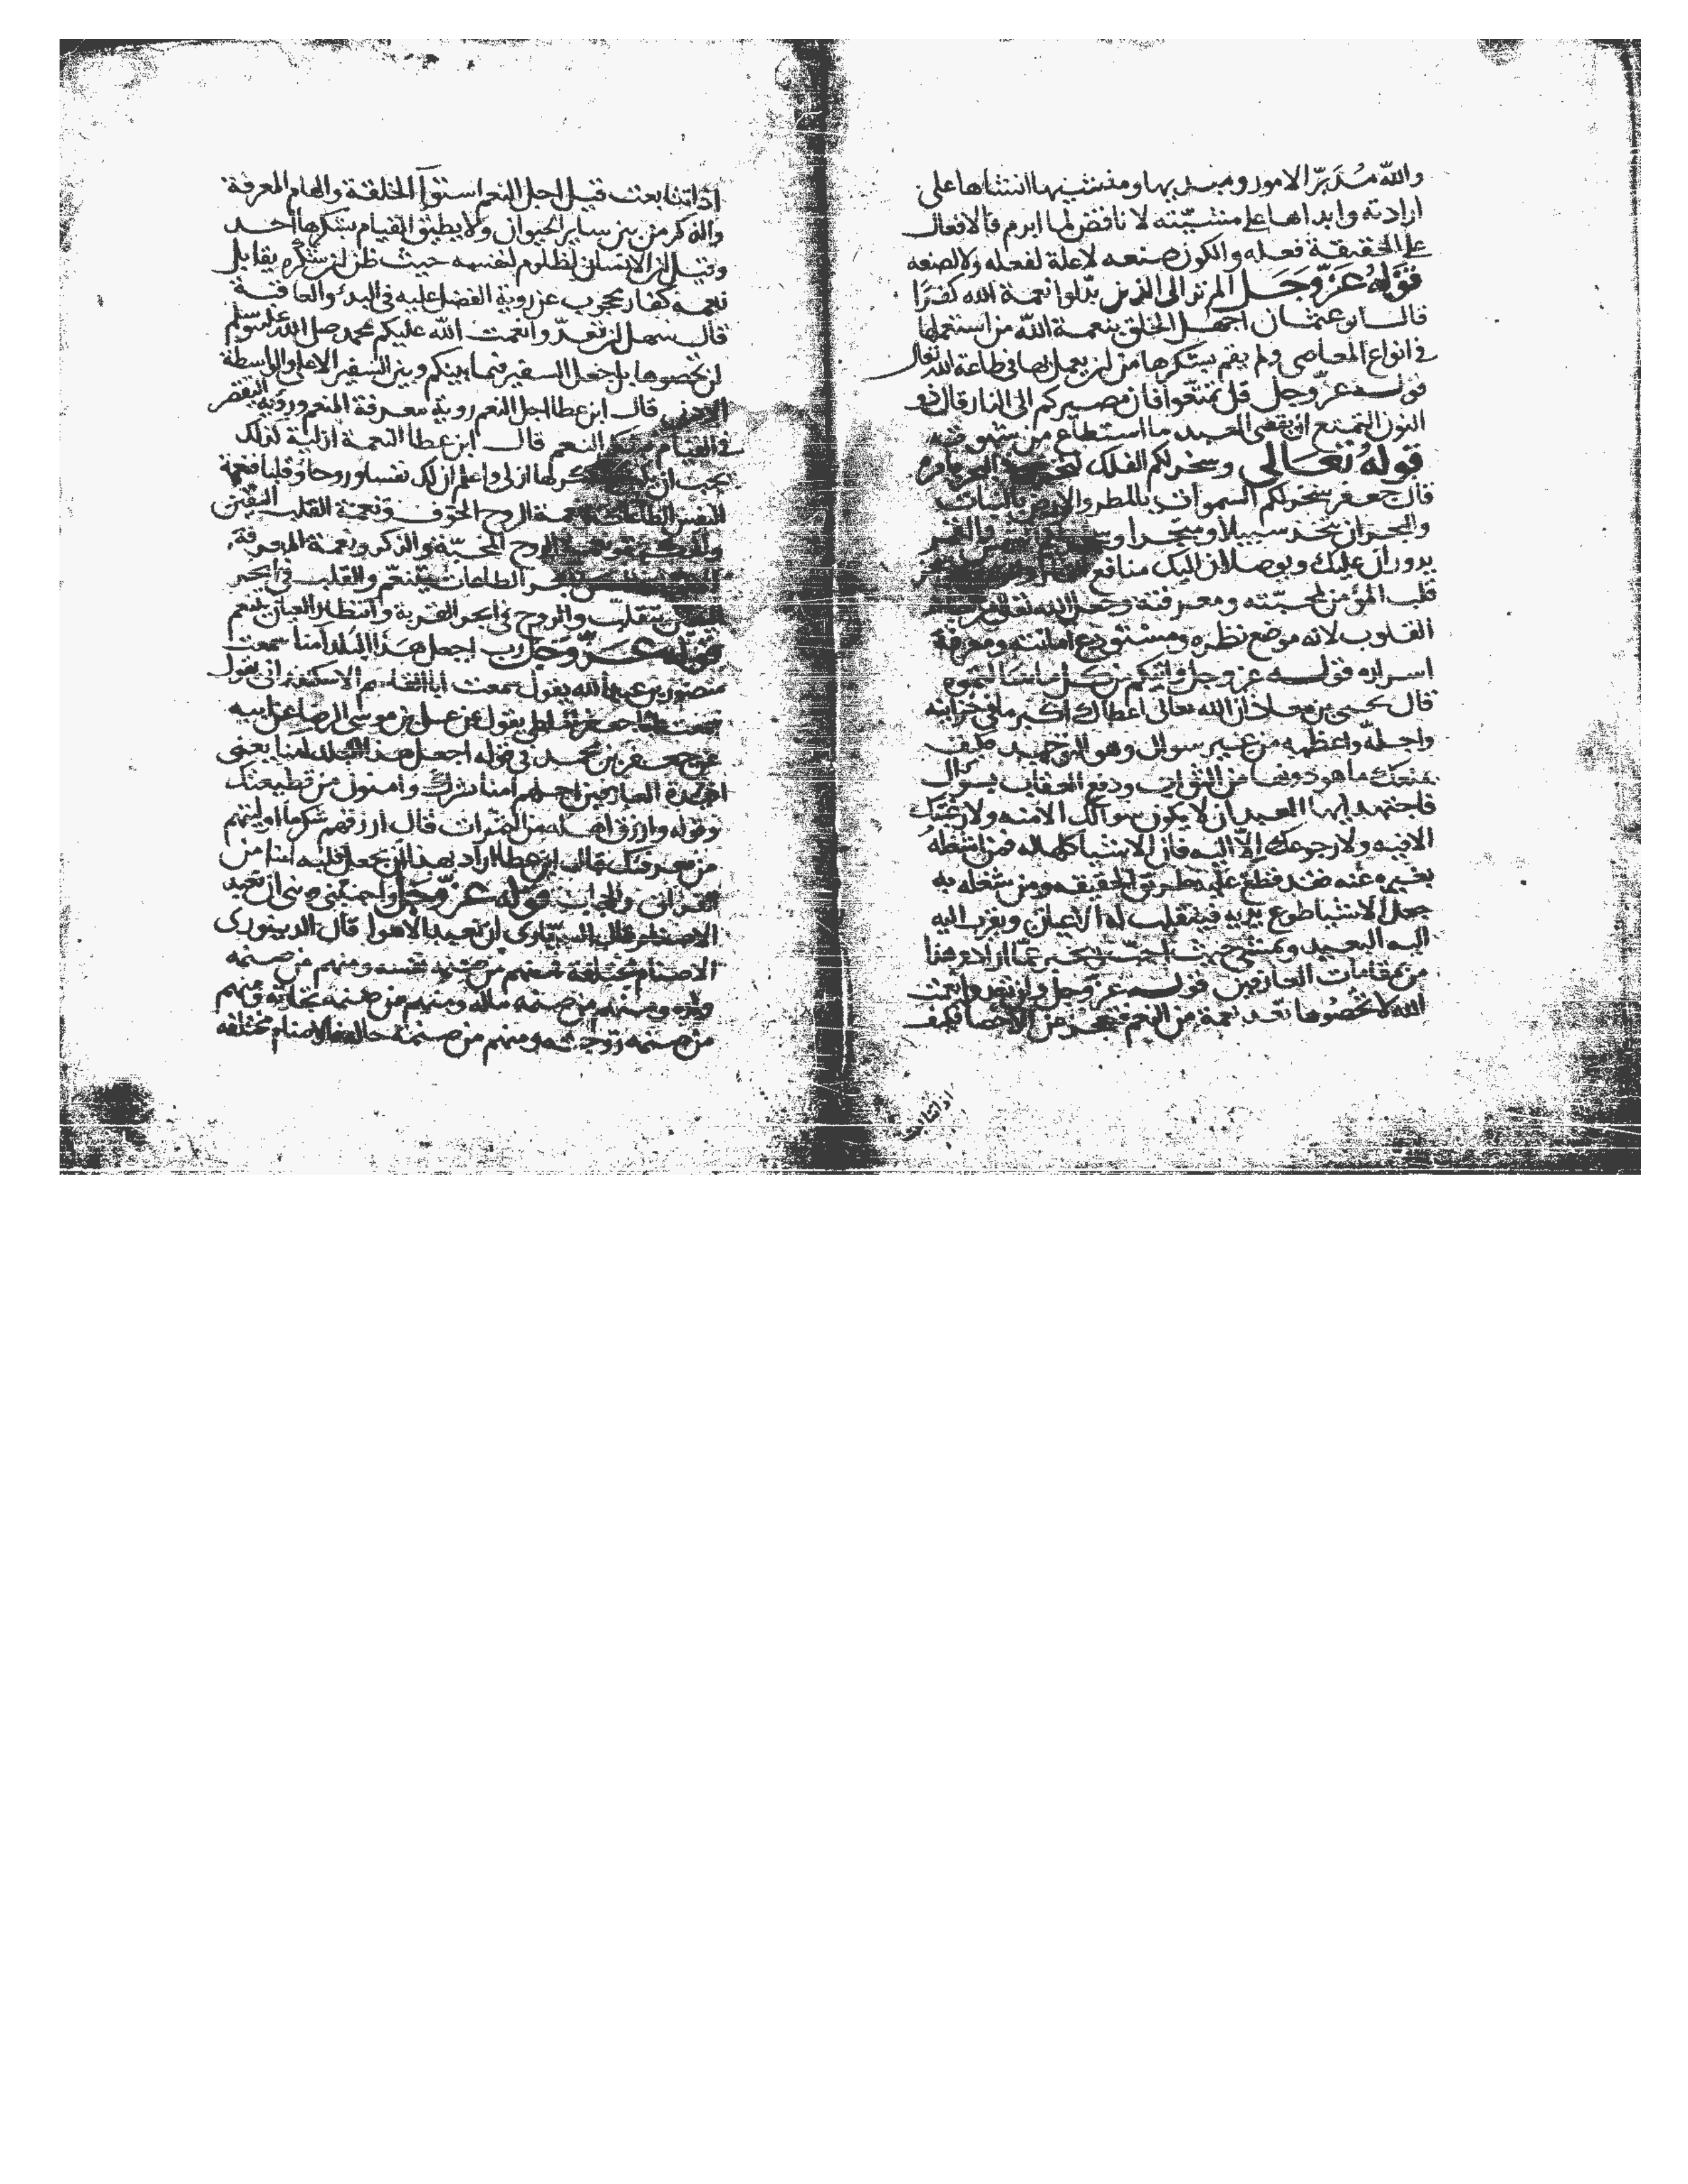 والله مُدَبّر الامور ومبديها ومنشيها انشاها على
ارادته وابداها على مشيّته لا ناقض لما ابرم فالافعال
على الحقيقة فعله والكون صنعه لا علة لفعله ولا لصنعه
قوله عَزّ وَجَل الم تر الى الذين بدّلوا نعمة الله كفرًا
قال ابو عثمان اجهل الخلق بنعمة الله من استعملها
في انواع المعاصي ولم يقم بشكرها من ان يعمل بها في طاعة الله تعالى
قوله عزّ وجل قل تمتّعوا فان مصيركم الى النار قال ذو
النون التمتع ان يقضي العبد ما استطاع من شهوته
قوله تعَالى وسخر لكم الفلك لتجري في البحر بامره
قال جعفر سخر لكم السموات بالمطر والارض بالنبات
والبحر ان يتخذ سبيلا ومتجرا وسخر الشمس والقمر
يدوران عليك ويوصلان اليك منافع
قلب المؤمن لمحبّته ومعرفته وحظ الله تعالى من
القلوب لانه موضع نظره ومستودع امانته ومعرفة
اسراره قوله عز وجل واتيكم من كل ما سالتموه
قال يحيى بن معاذ ان الله تعالى اعطاك اكبر ما في خزاينه
واجلّه واعظمه من غير سوال وهو التوحيد فكيف
يمنعك ما هو دونها من الثواب ودفع العقاب بسوال
فاجتهد ايها العبد ان لا يكون سوالك الا منه ولا رغبتك
الا فيه ولا رجوعك الا اليه فان الاشيا كلها له فمن اشغله
بغيره عنه فقد قطع عليه طريق الحقيقه ومن شغله به
جعل الاشيا طوع يديه فينقلب له الاعيان ويقرب اليه
اليه البعيد ويمشي حيث احبّ ويخبر عمّا اراد وهذا
من مقامات العارفين قوله عزّ وجل وان تعدوا نعمت
الله لا تحصوها تعد نعمة من النعم فيعجز عن الاحصا فكيف
اذا تتابعت
اذا تتابعت قيل اجل النعم استوآ الخلقة والهام المعرفة
والذكر من بين ساير الحيوان ولا يطيق القيام بشكرها احد
وقيل ان الانسان لظلوم لنفسه حيث ظن ان شكره يقابل
نعمه كفار محجوب عن روية الفضل عليه في البدء والعاقبة
قال سهل ان تعدّوا نعمت الله عليكم محمد صلى الله عليه وسلم
لن تحصوها بل جعل السفير فيما بينكم وبين السفير الاعلى والواسطة
الادنى قال ابن عطا اجل النعم روية معرفة المنعم وروية التقصير
في القيام النعم قال ابن عطا النعمة ازلية لذلك
يجب ان شكرها ازلي واعلم ان لك نفسا وروحا وقلبا فنعمة
النفس الطاعات ونعمة الروح الخوف ونعمة القلب اليقين
نعمة الروح المحبّة والذكر ونعمة المعرفة
بحر الطاعات يتنعّم والقلب في ابحر
يتقلّب والروح في ابحر القربة وانتظار العيان يتنعم
قوله عَزّ وَجَل رب اجعل هذا البلد آمنا سمعت
منصور بن عبد الله يقول سمعت ابا القاسم الاسكندراني يقول
سمعت ابا جعفر الملطي يقول عن علي بن موسى الرضا عن ابيه
عن جعفر بن محمد في قوله اجعل هذا البلد امنا يعني
افئدة العارفين اجعلهم امنا سرك وامنون من قطيعتك
وقوله وارزق اهله من الثمرات قال ارزقهم شكر ما اوليتهم
من معرفتك قال ابن عطا اراد بهذا ان يجعل قلبه امنا من
الفراق والحجاب قوله عزّ وَجَل واجنبني وبني ان نعبد
الاصنام قال ان نعبد الاهوا قال الدينوري
الاصنام مختلفة فمنهم من صنمه نفسه ومنهم من صنمه
ولده ومنهم من صنمه ماله ومنهم من صنمه تجارته ومنهم
من صنمه زوجته ومنهم من صنمه حاله فالاصنام مختلفه